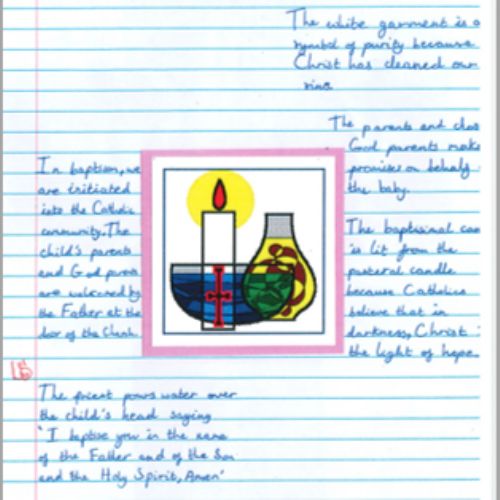 The white garment is a
symbol of purity because
Christ has cleaned our
sins
The parents and also
God parents make
promises on behalf
the baby.
In baptism, we
are initiated
into the Catholic
community. The
child's parents
and God paren
are welcomed by
the Father at the
door of the Church.
The baptismal can
is lit from the
pasteral candle
because Catholics
believe that in
darkness, Christ
the light of hope.
The priest pours water over
the child's head saying
"I baptise you in the name
of the Father and of the Son
and the Holy Spirit, Amen'